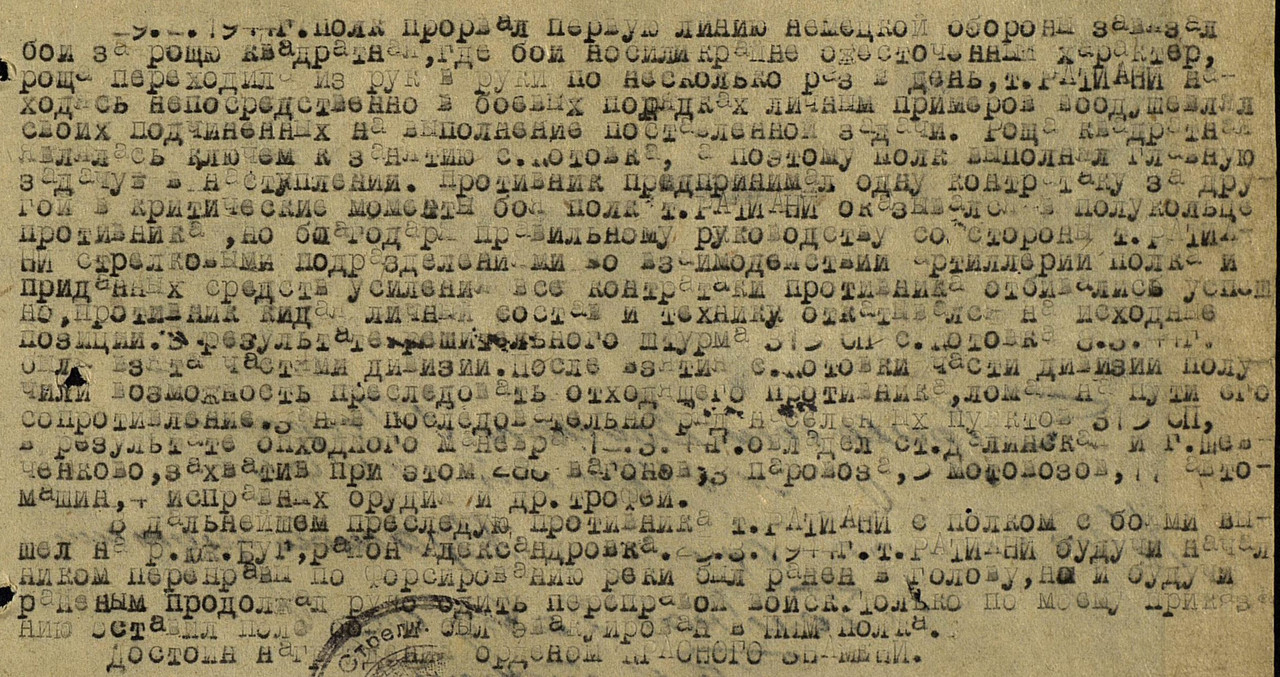 г. полк прорвал первую линию немецкой обороны завязал
бои за рощю квадратная,где бои носили крайне ожесточенный характер,
роща переходила из рук в руки по несколько раз в день,т.РАТИАНИ на-
ходясь непосредственно в боевых порядках личным примеров воодушевлял
своих подчиненных на выполнение поставленной задачи. Роща квадратная
являлась ключем к занятию с.Котовка, а поэтому полк выполнял главную
задачув в наступлении. Противник предпринимал одну контратаку за дру
гой в критические моменты боя полк т.РАТИАНИ оказывался в полукольце
противника ,но благодаря правильному руководству со стороны т.РАТИА-
НИ стрелковыми подразделениями во взаимодействии артиллерии полка и
приданных средств усиления все контратаки противника отбивались успеш
но,противник кидая личный состав и технику откатывался на исходные
позиции.В результате решительного штурма СП с.Котовка
была взята частями дивизии.После взятия с.Котовки части дивизии полу
чили возможность преследовать отходящего противника,ломая на пути его
сопротивление.Заняв последовательно ряд населенных пунктов СП,
в результате обходного маневра овладел ст.Далинская и г.Шев-
ченково,захватив при этом вагонов,3 паровоза, мотовозов, авто-
машин,4 исправных орудия и др.трофеи.
В дальнейшем преследуя противника т.РАТИАНИ с полком с боями вы-
шел на р.юж.Буг,район Александровка. т.РАТИАНИ будучи начал
ником переправы по форсированию реки был ранен в голову,но и будучи
раненым продолжал руководить переправой войск.Только по моему приказа
нию оставил поле боя и был эвакуирован в полка.
Достоин награждения орденом КРАСНОГО ЗНАМЕНИ.
Стрелк.